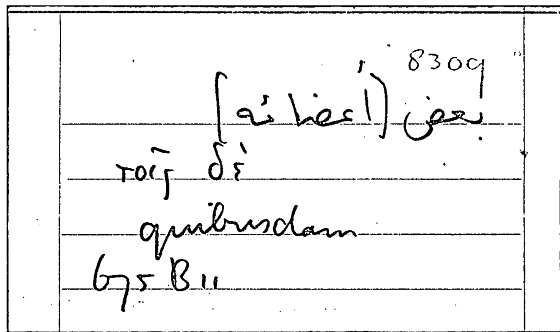 8309
بعض [أعضائه]
τοῖς δὲ
quibusdam
675 B 11